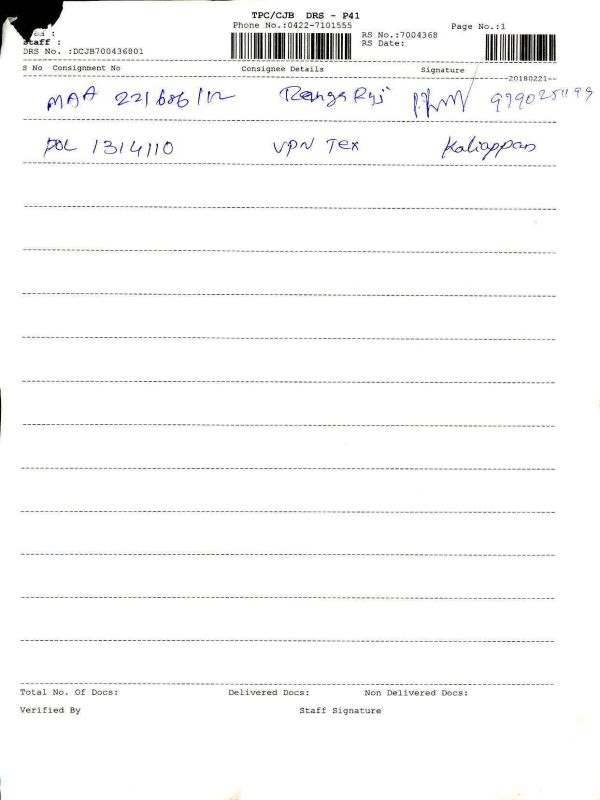 TPC/CJB DRS - P41
Phone No.:0422-7101555
Page No.:1
RS No.:7004368
RS Date:
Staff :
DRS No. :DCJB700436801
S No Consignment No Consignee Details Signature
--20180221--
MAA 221686/12 Ranga Raj
POL 1314110 VPN Tex Kaliappan
Total No. Of Docs: Delivered Docs: Non Delivered Docs:
Verified By Staff Signature